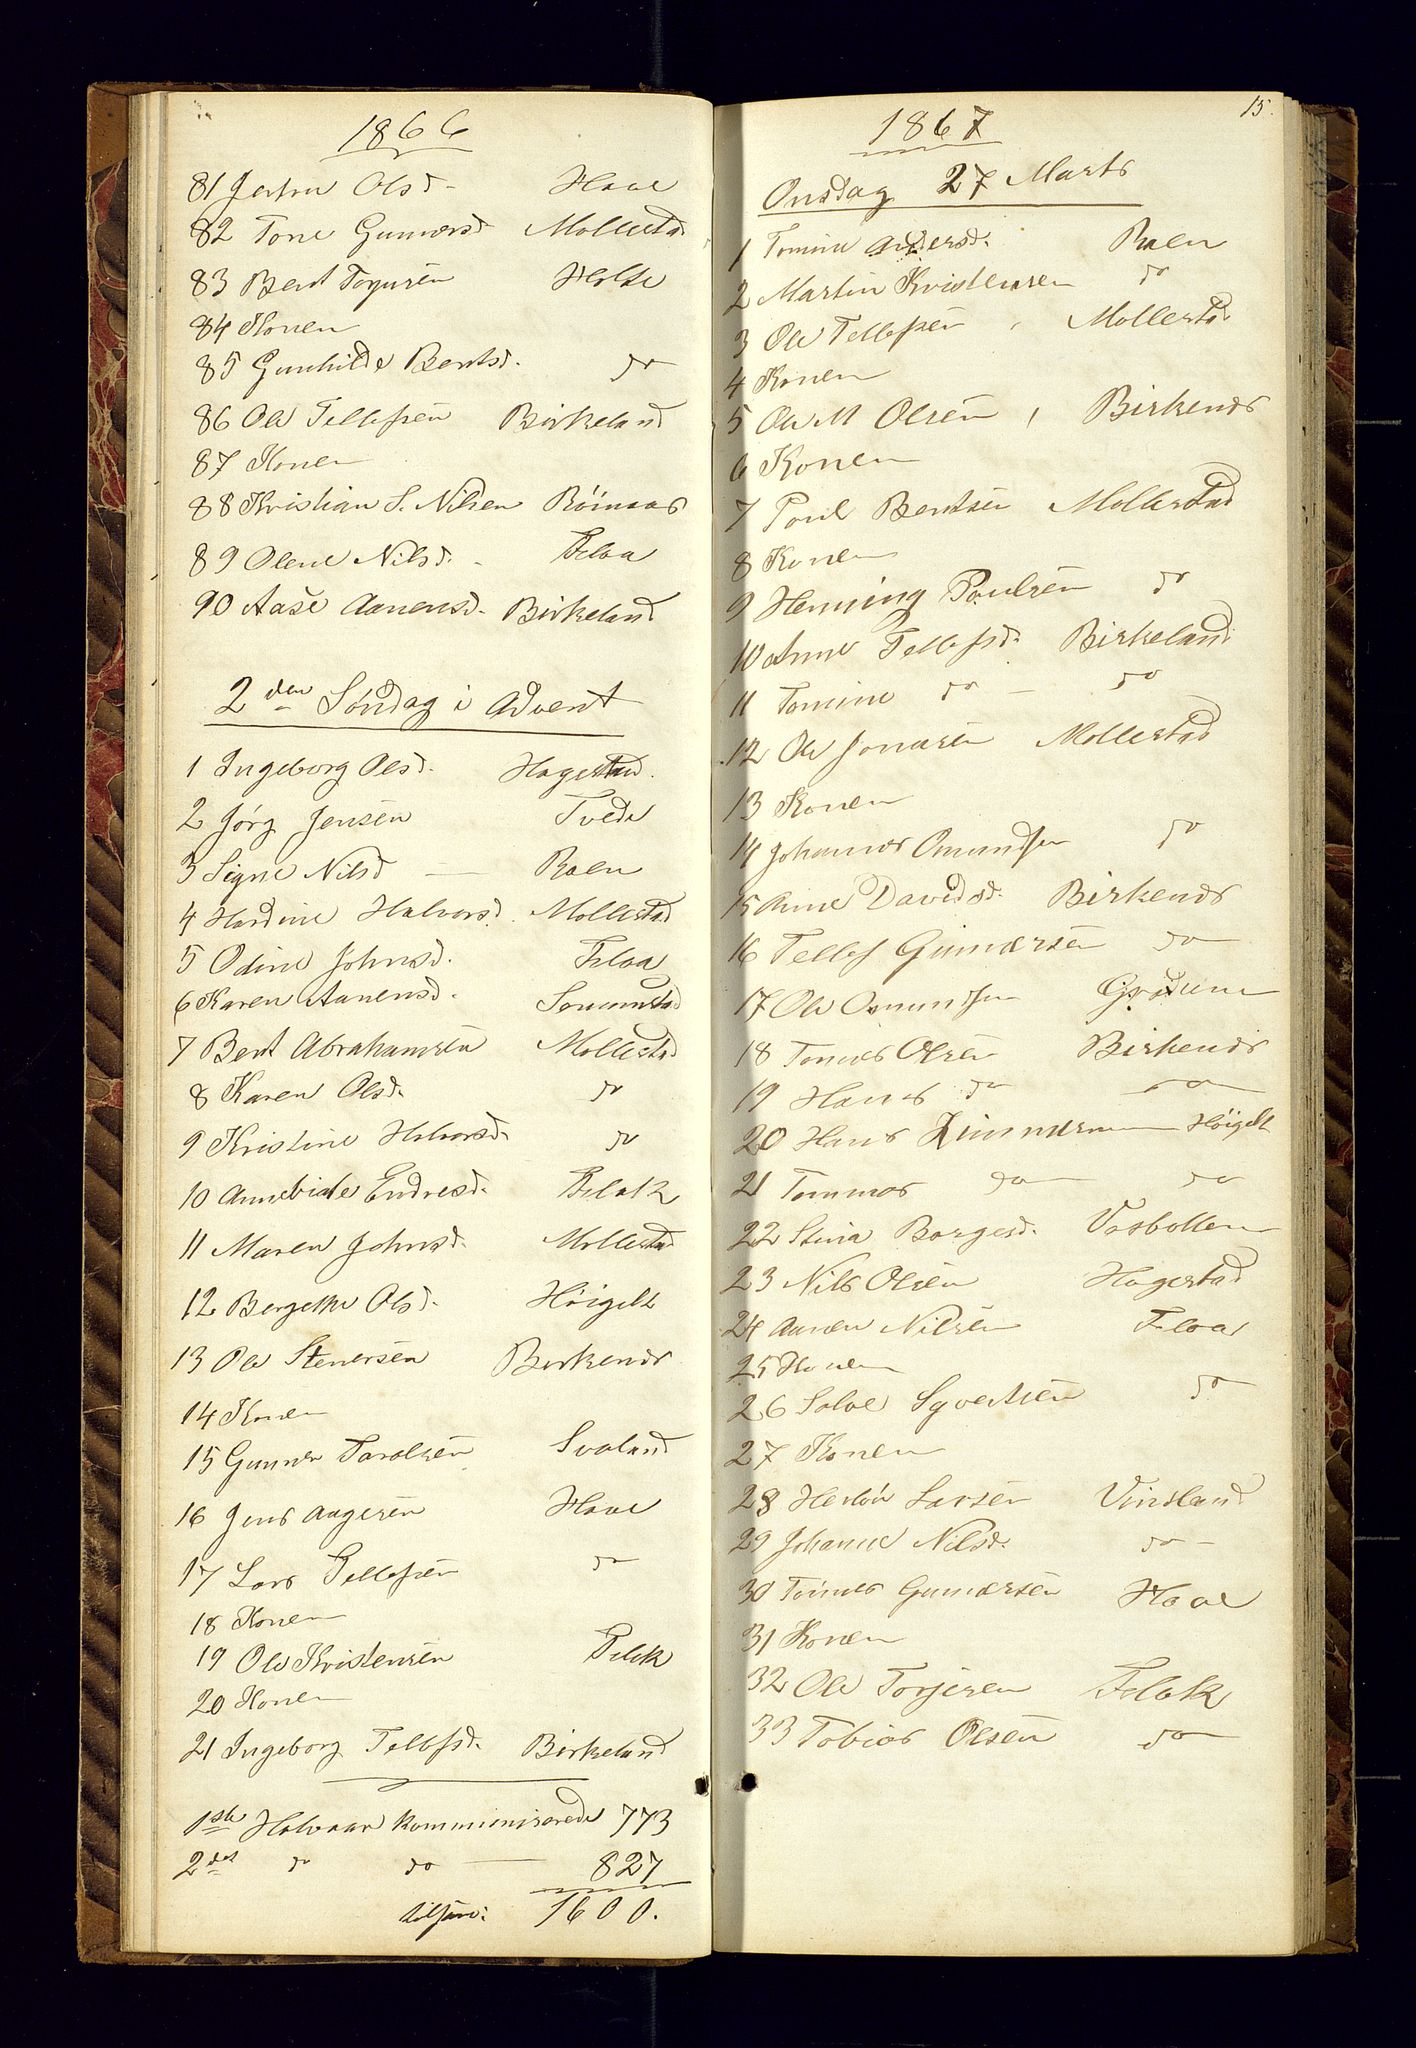 1866
81 Olsd. Haae
82 Tone Gunnersd Mollestad
83 Bent Holte
84 Konen
85 Gunhilde Bentsd. do
86 Ole Tellefsen Birkeland
87 Konen
88 Kristian S. Nilsen
89 Olene Nilsd. Fløa
90 Aase Aanensd. Birkeland
2den Søndag i Advent
1 Ingeborg Olsd. Hagestad.
2 Jørg Jensen Tvede
3 Signe Nilsd — Raen
4 Hardine Halvorsd. Mollestad
5 Odine Johnsd. Fløa
6 Karen Aanensd.
7 Bent Abrahamsen Mollestad
8 Karen Olsd. do
9 Kristine Halvorsd. do
10 Endresd. Flak
11 Maren Johnsd. Mollestad
12 Bergethe Olsd. Høigilt
13 Ole Stenersen Birkenes
14 Konen
15 Gunner Taralsen Svaland
16 Jens Aagesen Haae
17 Lars Tellefsen do
18 Konen
19 Ole Kristensen Flak
20 Konen
21 Ingeborg Tellefsd. Birkeland
1ste Halvaar kommuniserede 773
2det do do — 827
tilsam: 1600.
15.
1867
Onsdag 27 Marts
1 Tomine Andersd. Raen
2 Martin Kristensen do
3 Ole Tellefsen, Mollestad
4 Konen
5 Ole M Olsen, Birkenes
6 Konen
7 Poul Bentsen Mollestad
8 Konen
9 Henning Poulsen do
10 Anne Tellefsd. Birkeland
11 Tomine do — do
12 Ole Jonasen Mollestad
13 Konen
14 Johannes Omundsen do
15 Anne Davidsd. Birkenes
16 Tellef Gunnersen do
17 Ole Osmundsen
18 Tomes Olsen Birkenes
19 Hans do do
20 Hans Zimmermann Høigilt
21 Tommas do do
22 Stina Borgesd. Vasbotten
23 Nils Olsen Hagestad
24 Aanen Nilsen Fløa
25 Konen
26 Salve Syvertsen do
27 Konen
28 Larsen Vindland
29 Johanne Nilsd. do —
30 Tomes Gunnersen Haae
31 Konen
32 Ole Torjesen Flak
33 Tobias Olsen do